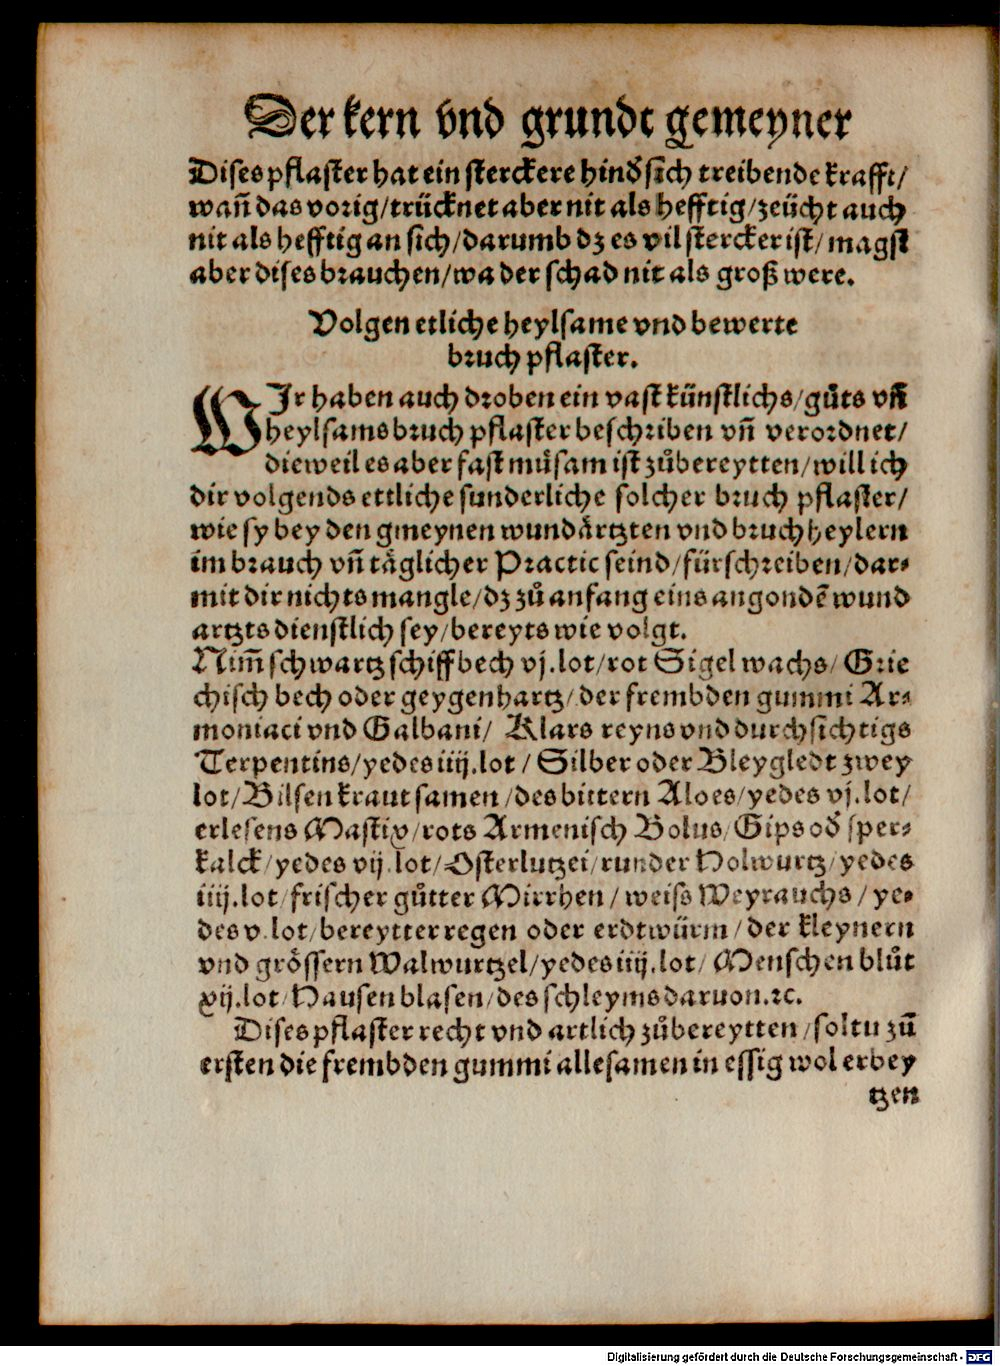 Der kern vnd grundt gemeyner
Dises pflaster hat ein sterckere hindď sich treibende krafft/
wañ das vorig/trücknet aber nit als hefftig/zeücht auch
nit als hefftig an sich/darumb dz es vil stercker ist/magst
aber dises brauchen/wa der schad nit als groß were.
Volgen etliche heylsame vnd bewerte
bruch pflaster.
WIr haben auch droben ein vast künstlichs/gůts vñ
heylsams bruch pflaster beschriben vñ verordnet/
dieweil es aber fast můsam ist zůbereytten/will ich
dir volgends ettliche sunderliche solcher bruch pflaster/
wie sy bey den gmeynen wundårtzten vnd bruchheylern
im brauch vñ tåglicher Practic seind/fürschreiben/dar⸗
mit dir nichts mangle/dz zů anfang eins angondẽ wund
artzts dienstlich sey/bereyts wie volgt.
Nim̃ schwartz schiffbech vj.lot/rot Sigel wachs/Grie
chisch bech oder geygenhartz/der frembden gummi Ar⸗
moniaci vnd Galbani/ Klars reyns vnd durchsichtigs
Terpentins/yedes iiij.lot/Silber oder Bleygledt zwey
lot/Bilsenkraut samen/des bittern Aloes/yedes vj.lot/
erlesens Mastix/rots Armenisch Bolus/Gips oď sper⸗
kalck/yedes vij.lot/Osterlutzei/runder Holwurtz/yedes
iiij.lot/frischer gůtter Mirrhen/weiss Weyrauchs/ye⸗
des v.lot/bereytter regen oder erdtwürm/der kleynern
vnd gróssern Walwurtzel/yedes iiij.lot/Menschen blůt
xij.lot/Hausen blasen/des schleyms daruon.ꝛc.
Dises pflaster recht vnd artlich zůbereytten/soltu zů
ersten die frembden gummi allesamen in essig wol erbey
tzen
Digitalisierung gefördert durch die Deutsche Forschungsgemeinschaft - DFG